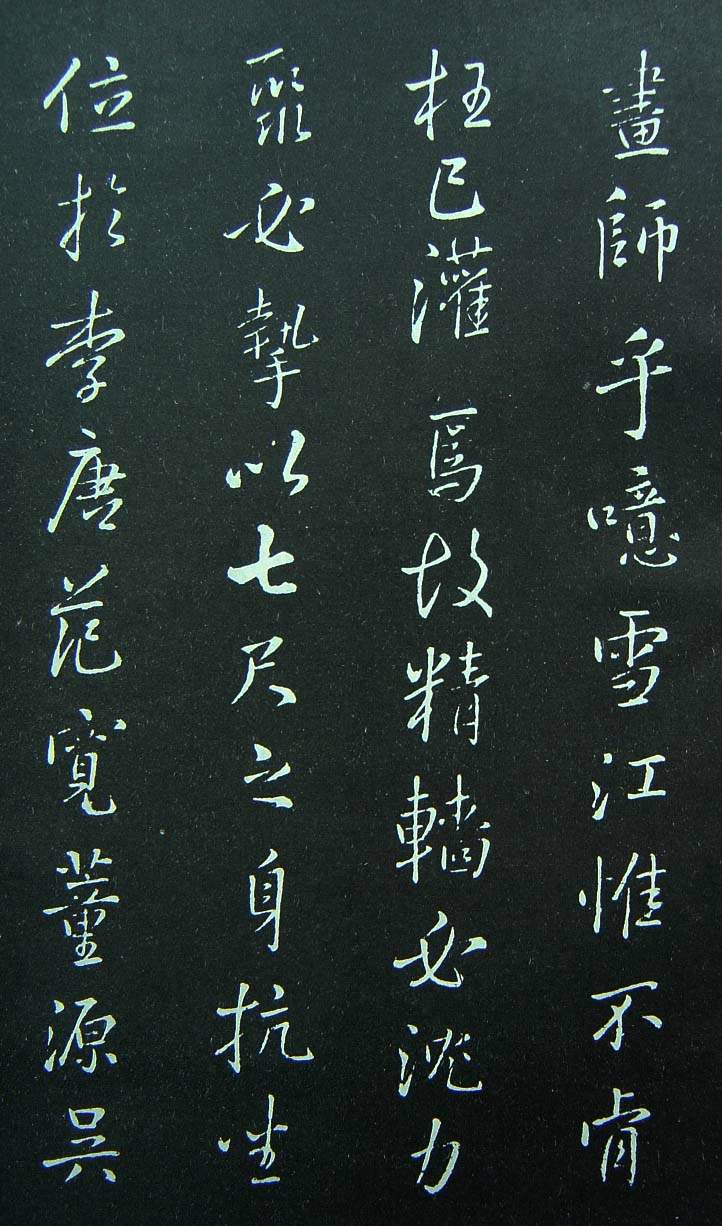 畫師乎噫雪江惟不肯
枉已灌焉故精轖必沈力
聚必摯以七尺之身抗坐
位於李唐范寬董源吳